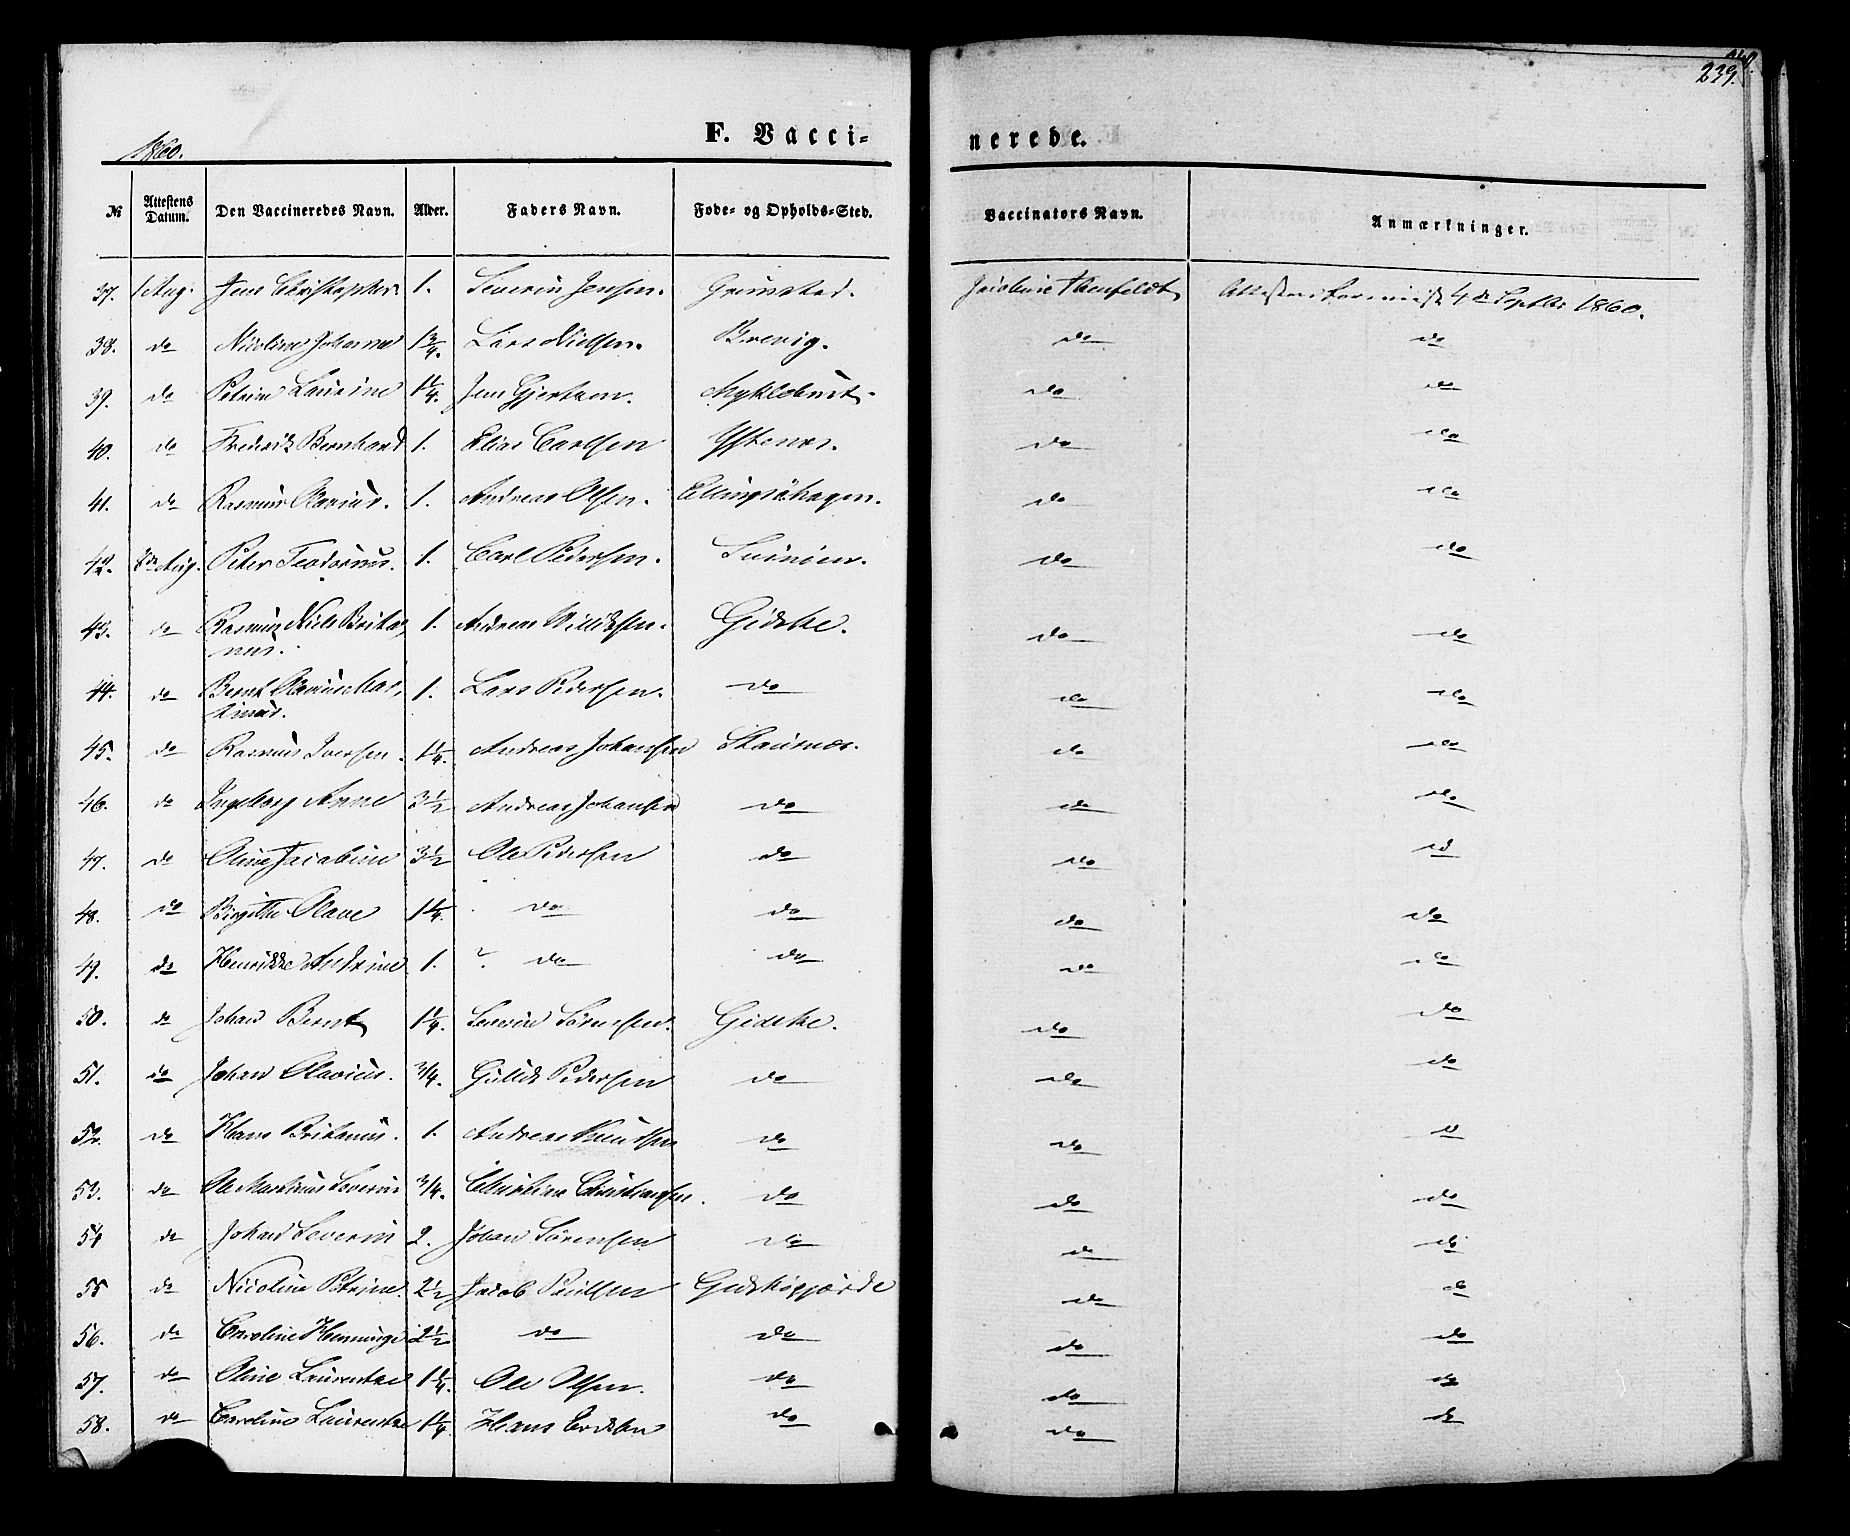 239.
1860.
F. Vacci-
nerede.
№ Attestens Datum. Den Vaccineredes Navn. Alder. Faders Navn. Føde- og Opholds-Sted. Vaccinators Navn. Anmærkninger.
37. 1 Aug. Jens Christopher 1. Severin Jensen. Grimstad. Jacobine Attesten 4de Septbr 1860.
38. do Nicoline Johanne 1 3/4. Lars Nielsen. Brevig. do do
39. do Petrine Laurine 1 1/4. Jens Gjertsen. Myklebust. do do
40. do Fredrik Bernhard 1. Elias Carlsen Ystenes. do do
41. do Rasmus Olavius. 1. Andreas Olsen. Ellingsöhagen. do do
42. 8de Aug. Peter Teodorus. 1. Carl Pedersen. do do
43. do Rasmus Niels Brita- 1. Andreas Gidske. do do
nus.
44. do Bernt Olavius Mar- 1. Lars Pedersen. do do do
tinus.
45. do Rasmus Iversen. 1 1/4. Andreas Johansen Skaunæs. do do
46. do Ingeborg Anne 3 1/2 Andreas Johansen do do do
47. do Oline Jacobine 3 1/2 Ole Pedersen do do do
48. do Birgitte Olave 1 1/4. do do do do
49. do Henrikke Antrine 1. do do do do
50. do Johan Bernt 1 1/4. Severin Sörensen. Gidske. do do
51. do Johan Olavius. 3/4. Gullik Pedersen do do do
52. do Hans Britanus. 1. Andreas Knudsen do do do
53. do Ole Martinus Severin 3/4. Christian Christiansen. do do do
54 do Johan Severin 2. Johan Sörensen do do do
55 do Nicoline Petrine. 2 1/2 Jacob Paulsen Gidskegjærde do do
56. do Caroline Henninge 2 1/2 do do do do
57. do Oline Laurentse 1 1/4. Ole Olsen. do do do
58. do Caroline Laurentse 1 1/4 Hans do do do